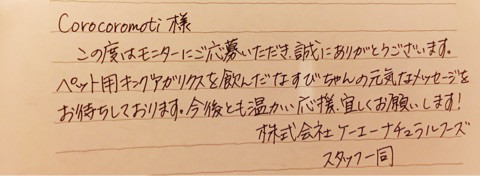 Corocoromoti 様
この度はモニターにご応募いただき、誠にありがとうございます。
ペット用キングアガリクスを飲んだなすびちゃんの元気なメッセージを
お待ちしております。今後とも温かい応援、宜しくお願いします!
株式会社ケーエーナチュラルフーズ
スタッフ一同